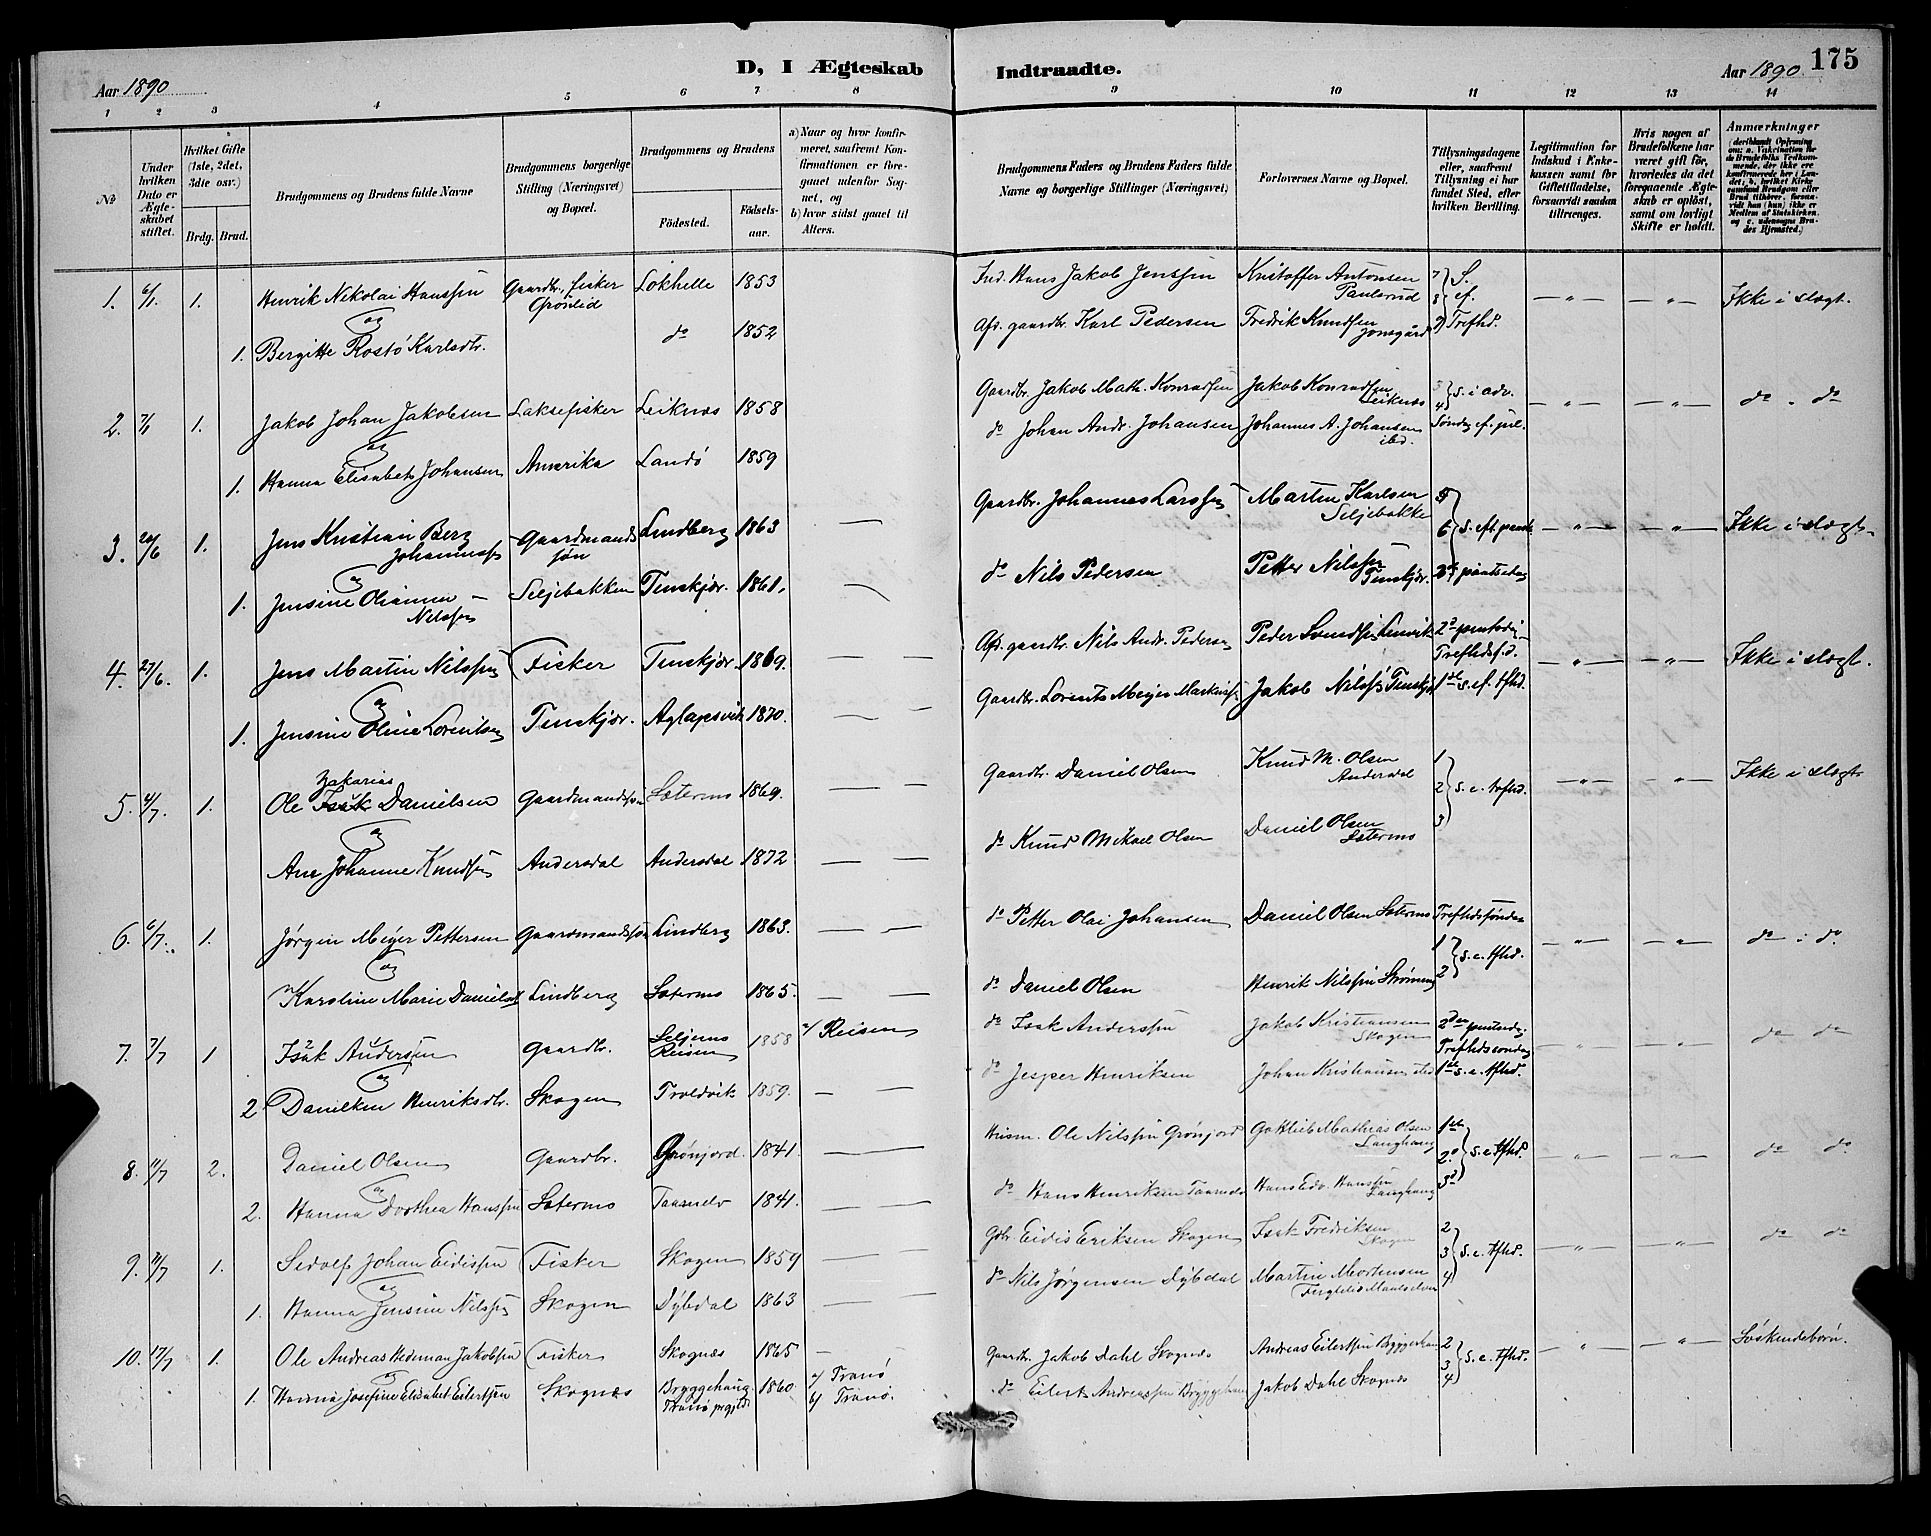 D, I Ægteskab Indtraadte.
175
Aar 1890
Aar 1890
1 2 3 4 5 6 7 8 9 10 11 12 13 14
No
Under hvilken Dato er Ægteskabet stiftet.
Hvilket Gifte (1ste, 2det, 3die osv.)
Brdg. Brud.
Brudgommens og Brudens fulde Navne
Brudgommens borgerlige Stilling (Næringsvei) og Bopæl.
Brudgommens og Brudens
Födested.
Födsels-aar.
a) Naar og hvor konfirmeret, saafremt Konfirmationen er foregaaet udenfor Sognet, og
b) hvor sidst gaaet til Alters.
Brudgommens Faders og Brudens Faders fulde Navne og borgerlige Stillinger (Næringsvei)
Forlovernes Navne og Bopæl.
Tillysningsdagene eller, saafremt Tillysning ei har fundet Sted, efter hvilken Bevilling.
Legitimation for Indskud i Enkekassen samt for Giftetilladelse, forsaavidt saadan tiltrænges.
Hvis nogen af Brudefolkene har været gift för, hvorledes da det foregaaende Ægteskab er oplöst, samt om lovligt Skifte er holdt.
Anmærkninger
1. 6/1 1. Henrik Nikolai Hanssen Gaardbr., fisker Grönlid Lokhelle 1853 Ind. Hans Jakob Jenssen Kristoffer Antonsen Paulsrud S. ef. Trefhd. — " — — " — Ikke i slægt.
og
1. Bergitte Rostö Karlsdtr. do 1852 Afd. gaardbr. Karl Pedersen Fredrik Knudsen
2. 7/1 1. Jakob Johan Jakobsen Laksefisker Leiknæs 1858 Gaardbr. Jakob Math. Konradsen Jakob Konradsen Leiknæs 3 4 S. i adv. — " — — " — do " do
og
1. Hanna Elisabeth Johansen Amerika Landö 1859 do Johan Andr. Johansen Johannes A. Johansen ibd. Söndag ef. jul.
3. 20/6 1. Jens Kristian Berg Johannessen Gaardmands sön Lindberg 1863 — Gaardbr. Johannes Larssen Martin Karlsen Seljebakke 5 6 — " — — " — Ikke i slægt.
og
1. Jensine Olianna Nilssen Seljebakken Tenskjær. 1861. — do Nils Pedersen Petter Nilssen Tenskjær.
4. 27/6. 1. Jens Martin Nilssen Fisker Tenskjær. 1869. — — Afd. gaardbr. Nils Andr. Pedersen Peder Svendsen Lenvik — " — — " — Ikke i slægt.
og
1. Jensine Oline Lorentsen Tenskjær. Aglapsvik 1870. — — Gaardbr. Lorents Meyer Jakob Nilssen Tenskjær 1ste S. ef. tfhd.
5. 4/7. 1. Ole Zakarias Isak Danielsen Gaardmandssön Sætermo 1869. — — Gaardbr. Daniel Olsen Knud M. Olsen Andersdal 1 2 3 S. e. trefhd. — " — — " — Ikke i slægt
og
Ane Johanne Knudsen Andersdal Andersdal 1872 — — do Knud Mikael Olsen Daniel Olsen Sætermo
6. 6/7. 1. Jørgen Meyer Pettersen Gaardmandssön Lindberg 1863. — — do Petter Olai Johansen Daniel Olsen Sætermo Trefhdssönda 1 2 S. e. tfhd. — " — — " — do i do.
og
Karoline Marie Danielsdt Lindberg Sætermo 1865. — — do Daniel Olsen Henrik Nilssen
7. 7/7 1 Isak Andersen Gaardbr. Seljemo Reisen 1858 a/ Reisen do Isak Anderssen Jakob Kristiansen Skogen Trefhdssondag — " — — " — do do
og
2 Danielken Henriksdtr. Skogen Troldvik 1859. — — do Jesper Henriksen Johan Kristiansen ibd 1ste S. e. tfhd.
8. 11/7 2. Daniel Olsen Gaardbr. Grönjord 1841. — — Husm. Ole Nilssen Grönjord Gottlieb Mathias Olsen 1ste 2d 3d S. e. tfhd. — " — — " — do do
og
2. Hanna Dorthea Hanssen Sætermo Taarnelv 1841. — — do Hans Henriksen Taarnelv Hans Edv. Hanssen
9. 11/7 1. Sedolf Johan Eidissen Fisker Skogen 1859 — — Gbr. Eidis Eriksen Skogen Isak Fredriksen Skogen 2 3 4 S. e. tfhd. — " — — " — do do
og
1. Hanna Jensine Nilssen Skogen Dybdal 1863 — — do Nils Jørgensen Dybdal Martin Mortensen
10. 17/7 1. Ole Andreas Hedeman Jakobsen Fisker Skognæs 1865 — Gaardbr. Jakob Dahl Skognæs Andreas Eilertsen Bryggehau 2 3 4 S. e. tfhd. — " — — " — Söskendebörn.
og
1. Hanna Josefine Elisabet Eilertsen Skognæs Bryggehaug Tranö prgjld. 1860. a/ Tranö b/ Tranö. do Eilert Andreassen Bryggehau Jakob Dahl Skognæs